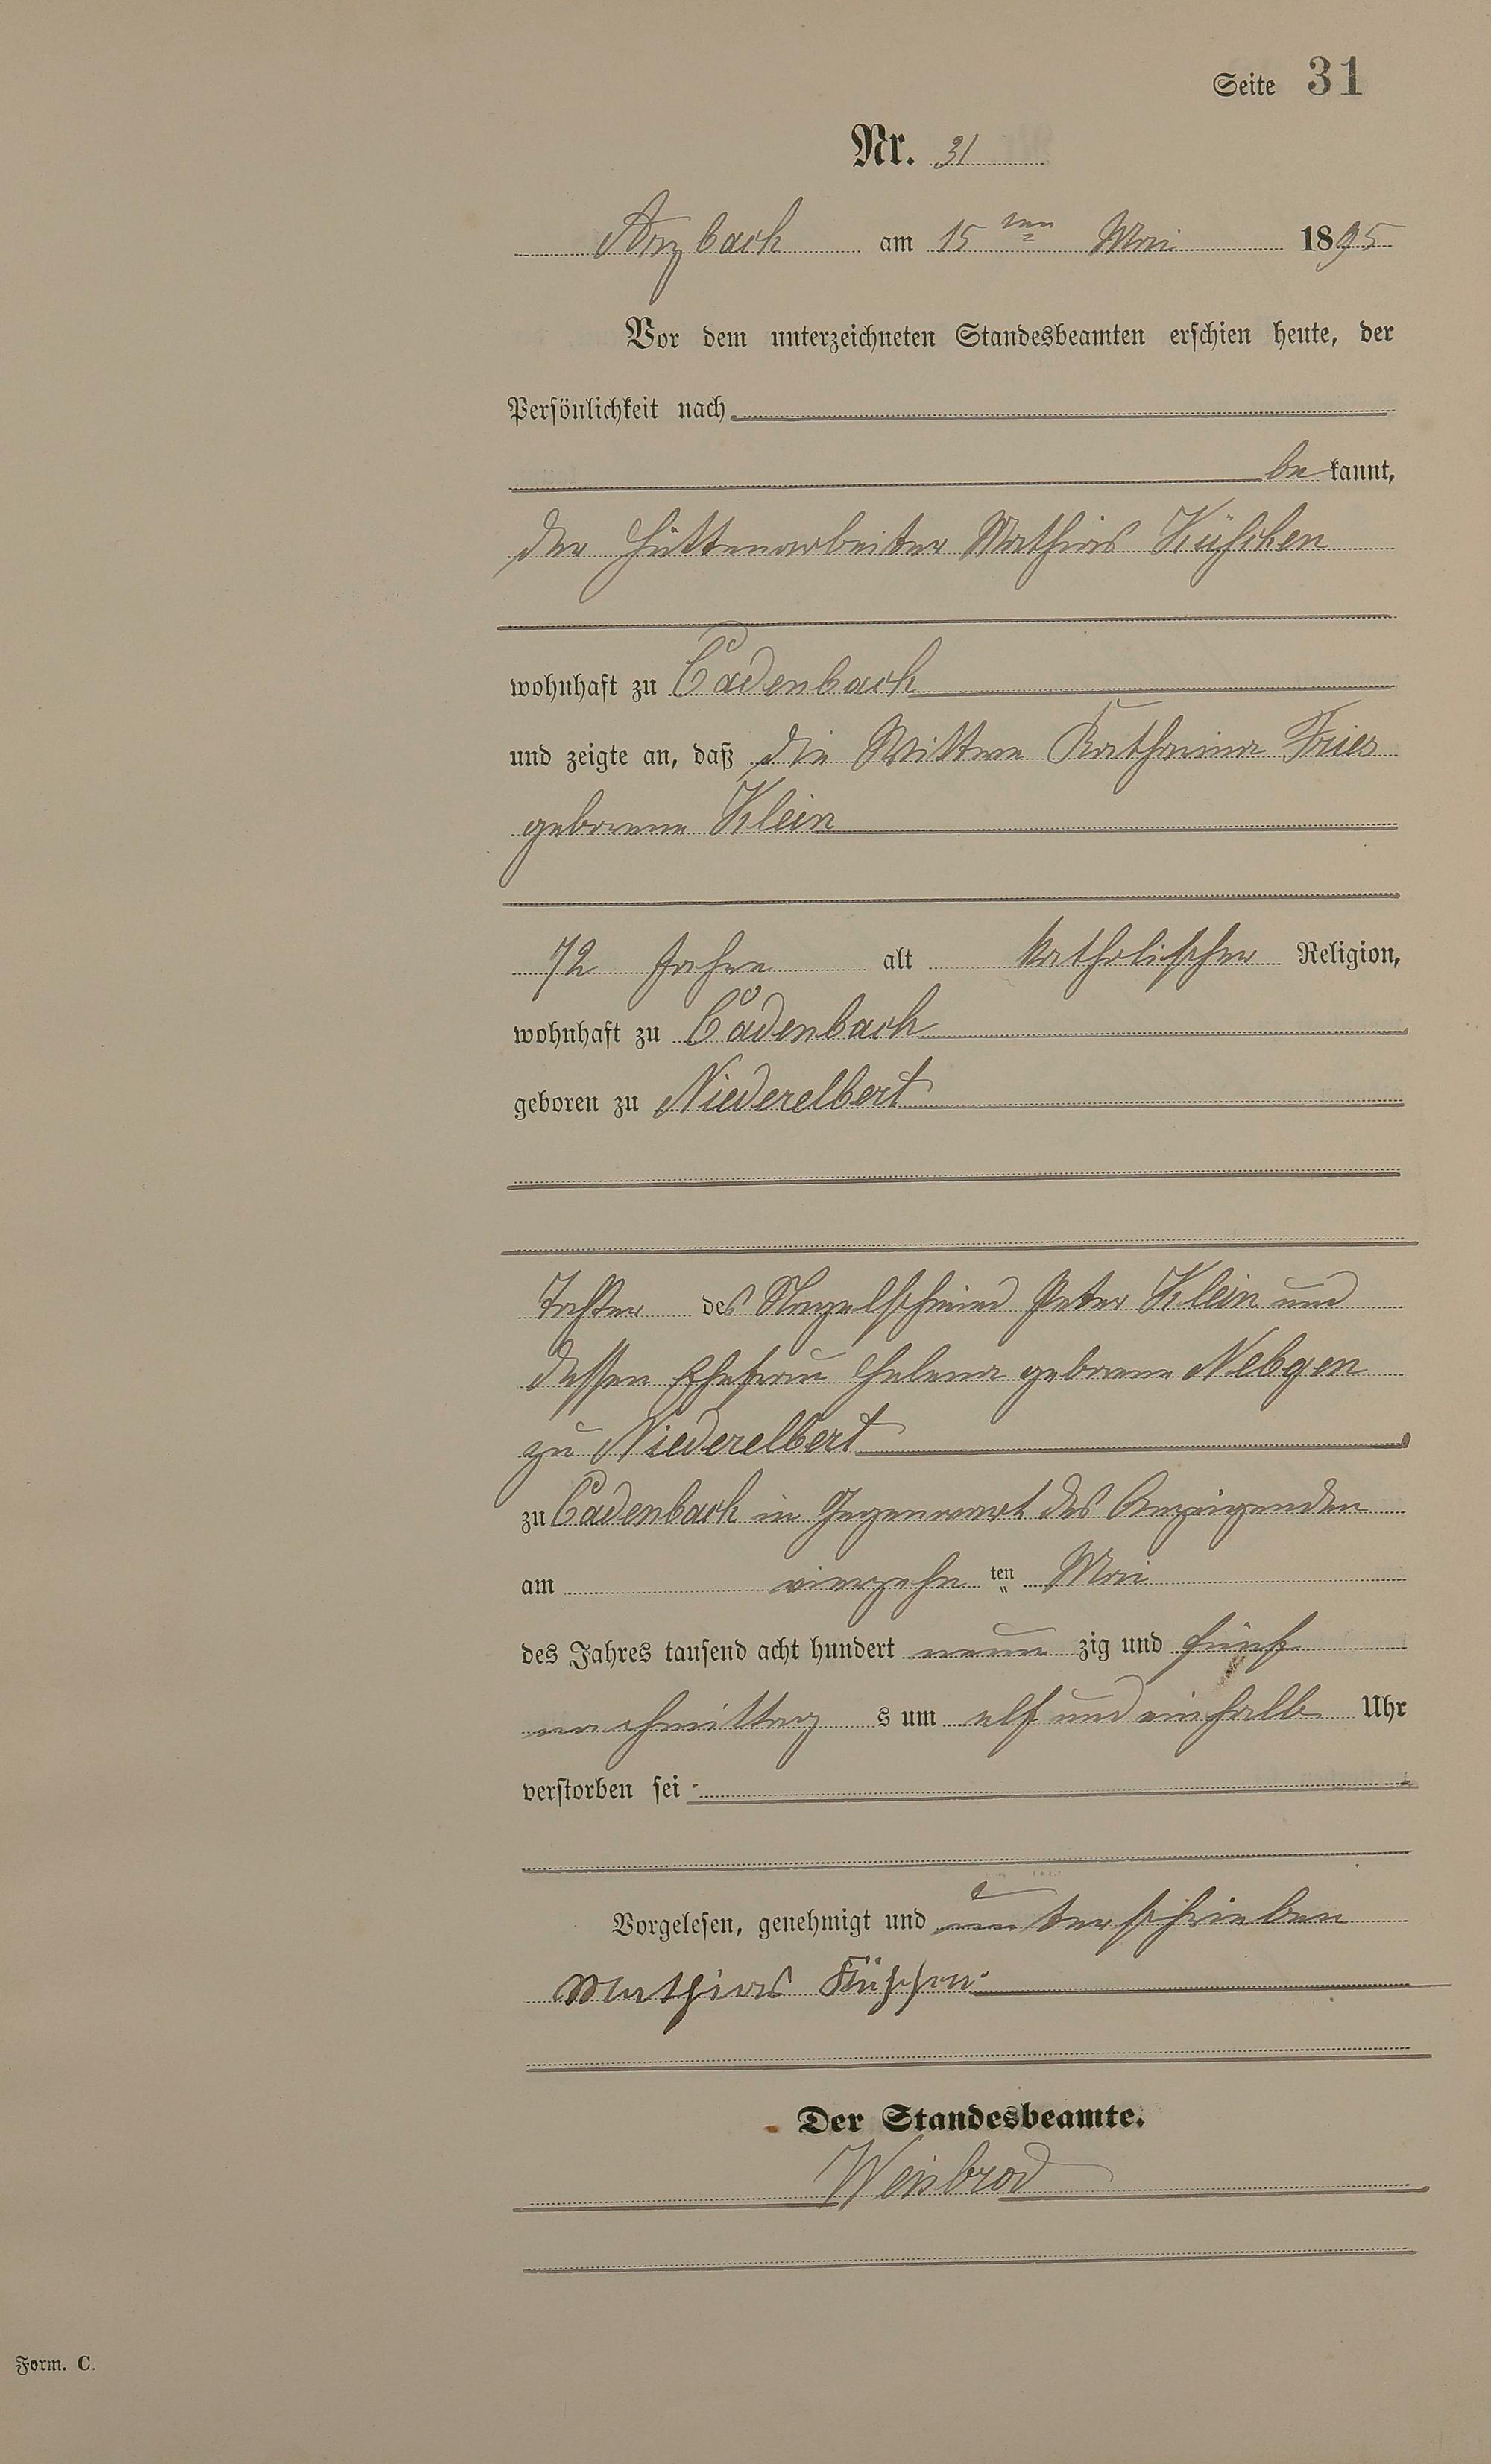 Seite 31
Nr. 31
Arzbach am 15ten Mai 1895
Vor dem unterzeichneten Standesbeamten erschien heute, der
Persönlichkeit nach
be kannt,
der Hüttenarbeiter Mathias Küschen
wohnhaft zu Cadenbach
und zeigte an, daß die Wittwe Katharina Fries
geborene Klein
72 Jahre alt katholischer Religion,
wohnhaft zu Cadenbach
geboren zu Niederelbert
Tochter des Nagelschmied Peter Klein und
dessen Ehefrau Helena geborene Nebgen
zu Niederelbert
zu Cadenbach in Gegenwart des Anzeigenden
am vierzehn ten Mai
des Jahres tausend acht hundert neun zig und fünf
nachmittag s um elf und einhalb Uhr
verstorben sei
Vorgelesen, genehmigt und unterschrieben
Mathias
Der Standesbeamte.
Weisbrod
Form. C.